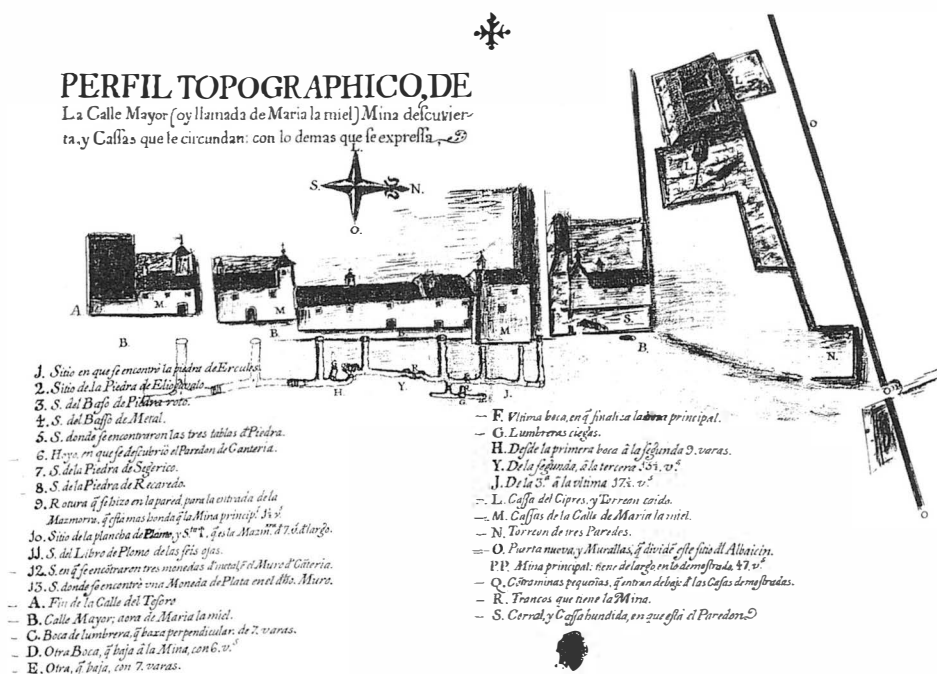 PERFIL TOPOGRAPHICO, DE
La Calle Mayor (oy llamada de Maria la miel) Mina descuvier-
ta, y Cassas que le circundan: con lo demas que se expressa,
L.
S. N.
O.
L L
L
O
A M M M S. N.
B. B. B.
H. Y. R G J.
O
1. Sitio en que se encontrò la piedra de Ercules.
2. Sitio de la Piedra de Eliogavalo.
3. S. del Baso de Piedra roto.
4. S. del Basso de Metal.
5. S. donde se encontraron las tres tablas d' Piedra.
6. Hoyo, en que se descubriò el Paredon de Canteria.
7. S. de la Piedra de Segerico.
8. S. de la Piedra de Recaredo.
9. Rotura q̃ se hizo en la pared, para la entrada de la
Mazmorra, q̃ està mas honda q̃ la Mina princip.
10. Sitio de la plancha de Plomo, y q̃ es la d' 7. v. d' largo.
11. S. del Libro de Plomo de las seis ojas.
12. S. en q̃ se encõtraron tres monedas d' metal, ẽ el Muro d' Cãteria.
13. S. donde se encontrò una Moneda de Plata en el dho. Muro.
– A. Fin de la Calle del Tesoro
– B. Calle Mayor; aora de Maria la miel.
– C. Boca de lumbrera, q̃ baxa perpendicular. de 7. varas.
– D. Otra Boca, q̃ baja â la Mina, con 6. v.ˢ
– E. Otra, q̃ baja, con 7. varas.
– F. Vltima boca, en q̃ finaliza la principal.
– G. Lumbreras ciegas.
H. Desde la primera boca â la segunda 9. varas.
Y. De la segunda, â la tercera 13½. v.ˢ
J. De la 3.ª â la vltima 17½. v.ˢ
– L. Cassa del Cipres, y Torreon caido.
– M. Cassas de la Calle de Maria la miel.
– N. Torreon de tres Paredes.
– O. Puerta nueva, y Murallas, q̃ dividẽ este sitio dl Albaicin.
P.P. Mina principal: tiene de largo, en lo demostrado, 47. v.ˢ
– Q. Cõtraminas pequeñas, q̃ entran debajo d' las Casas demostradas.
– R. Trancos que tiene la Mina.
– S. Corral, y Cassa hundida, en que està el Paredon